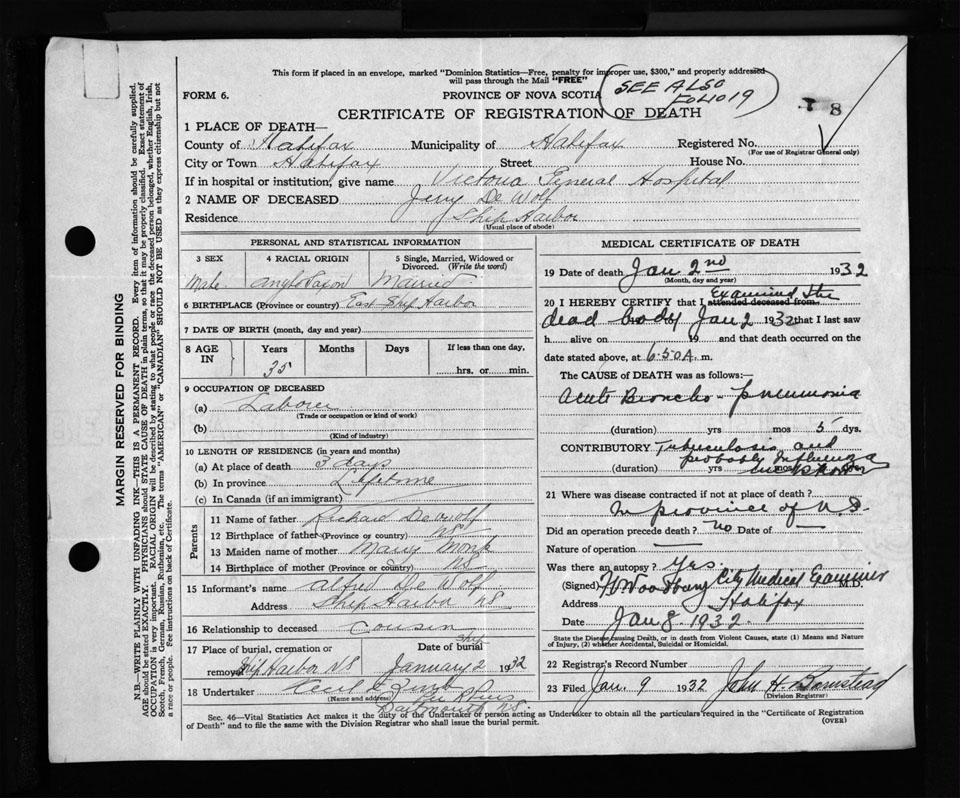 This form if placed in an envelope, marked "Dominion Statistics—Free, penalty for improper use, $300," and properly addressed
will pass through the Mail "FREE"
FORM 6.
PROVINCE OF NOVA SCOTIA
SEE ALSO
FOLIO 19
8
CERTIFICATE OF REGISTRATION OF DEATH
1 PLACE OF DEATH—
County of Halifax Municipality of Halifax Registered No.
(For use of Registrar General only)
City or Town Halifax Street House No.
If in hospital or institution, give name Victoria General Hospital
2 NAME OF DECEASED Jerry De Wolf
Residence Ship Harbor
(Usual place of abode)
PERSONAL AND STATISTICAL INFORMATION
3 SEX 4 RACIAL ORIGIN 5 Single, Married, Widowed or Divorced. (Write the word)
Male Anglo Saxon Married
6 BIRTHPLACE (Province or country) East Ship Harbor
7 DATE OF BIRTH (month, day and year)
8 AGE IN Years Months Days If less than one day,
35 hrs. or min.
9 OCCUPATION OF DECEASED
(a) Laborer
(Trade or occupation or kind of work)
(b)
(Kind of industry)
10 LENGTH OF RESIDENCE (in years and months)
(a) At place of death 3 days
(b) In province Lifetime
(c) In Canada (if an immigrant)
Parents
11 Name of father Richard DeWolf
12 Birthplace of father (Province or country) NS
13 Maiden name of mother Mary Monk
14 Birthplace of mother (Province or Country) NS
15 Informant's name Alfred De Wolf
Address Ship Harbor NS
16 Relationship to deceased Cousin
17 Place of burial, cremation or removal Ship Harbor NS Date of burial January 2 1932
18 Undertaker
(Name and address)
Dartmouth N.S.
MEDICAL CERTIFICATE OF DEATH
19 Date of death Jan 2nd 1932
(Month, day and year)
20 I HEREBY CERTIFY that I attended deceased from Examined the
dead body Jan 2 1932 that I last saw
h alive on 19 and that death occurred on the
date stated above, at 6.50 A. m.
The CAUSE of DEATH was as follows:—
Acute Broncho-pneumonia
(duration) yrs mos 5 dys.
CONTRIBUTORY Tuberculosis and
probably Influenza
(duration) yrs mos
21 Where was disease contracted if not at place of death?
In province of N.S.
Did an operation precede death? no Date of —
Nature of operation —
Was there an autopsy? Yes.
(Signed) Woodbury City Medical Examiner
Address Halifax
Date Jan 8. 1932.
State the Disease causing Death, or in death from Violent Causes, state (1) Means and Nature of Injury, (2) whether Accidental, Suicidal or Homicidal.
22 Registrar's Record Number
23 Filed Jan. 9 1932 John H. Barnstead
(Division Registrar)
Sec. 46—Vital Statistics Act makes it the duty of the Undertaker or person acting as Undertaker to obtain all the particulars required in the "Certificate of Registration
of Death" and to file the same with the Division Registrar who shall issue the burial permit.
(OVER)
MARGIN RESERVED FOR BINDING
N.B.—WRITE PLAINLY WITH UNFADING INK—THIS IS A PERMANENT RECORD. Every item of information should be carefully supplied.
AGE should be stated EXACTLY. PHYSICIANS should STATE CAUSE OF DEATH in plain terms, so that it may be properly classified. Exact statement of
OCCUPATION is very important. RACIAL ORIGIN will be described by stating to what people or race the deceased person belonged, whether English, Irish,
Scotch, French, German, Russian, Ruthenian, etc. The terms "AMERICAN" or "CANADIAN" SHOULD NOT BE USED as they express citizenship but not
a race or people. Fee instructions on back of Certificate.